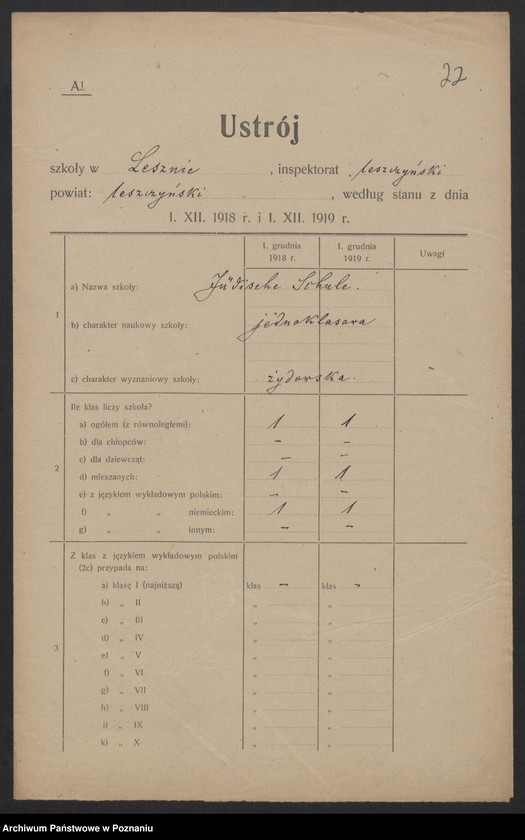 22
A¹
Ustrój
szkoły w Lesznie, inspektorat leszczyński
powiat: leszczyński, według stanu z dnia
1. XII. 1918 r. i 1. XII. 1919 r.
1. grudnia 1918 r. 1. grudnia 1919 r. Uwagi
1
a) Nazwa szkoły: Jüdische Schule.
b) charakter naukowy szkoły: jednoklasowa
c) charakter wyznaniowy szkoły: żydowska.
2
Ile klas liczy szkoła?
a) ogółem (z równoległemi): 1 1
b) dla chłopców: – –
c) dla dziewcząt: – –
d) mieszanych: 1 1
e) z językiem wykładowym polskim: – –
f) „ „ niemieckim: 1 1
g) „ „ innym: – –
3
Z klas z językiem wykładowym polskim
(2e) przypada na:
a) klasę I (najniższą) klas – klas –
b) „ II „ „
c) „ III „ „
d) „ IV „ „
e) „ V „ „
f) „ VI „ „
g) „ VII „ „
h) „ VIII „ „
i) „ IX „ „
k) „ X „ „
Archiwum Państwowe w Poznaniu